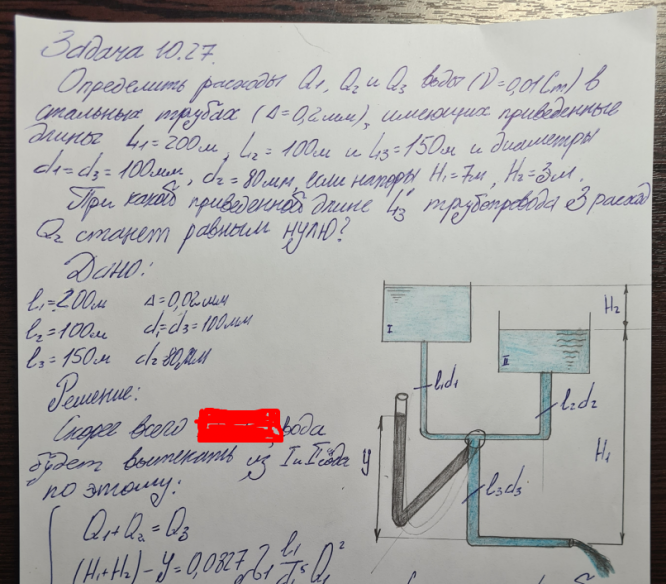 Задача 10.27.
Определить расходы Q1, Q2 и Q3 воды (ν = 0,01 Ст) в
стальных трубах (Δ=0,2мм), имеющих приведенные
длины L1=200м, L2=100м и L3=150м и диаметры
d1=d3=100мм, d2=80мм, если напоры H1=7м, H2=3м.
При какой приведенной длине L3' трубопровода 3 расход
Q2 станет равным нулю?
Дано:
l1=200м Δ=0,02мм
l2=100м d1=d3=100мм
l3=150м d2=80мм
Решение:
Скорее всего вода
будет вытекать из I и II
по этому:
Q1+Q2=Q3
(H1+H2)-y=0,0827 l1 Q1²
I
II
H2
l1d1
l2d2
y
H1
l3d3